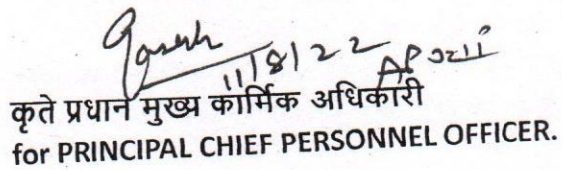 Ganesh
11/8/22
कृते प्रधान मुख्य कार्मिक अधिकारी
for PRINCIPAL CHIEF PERSONNEL OFFICER.